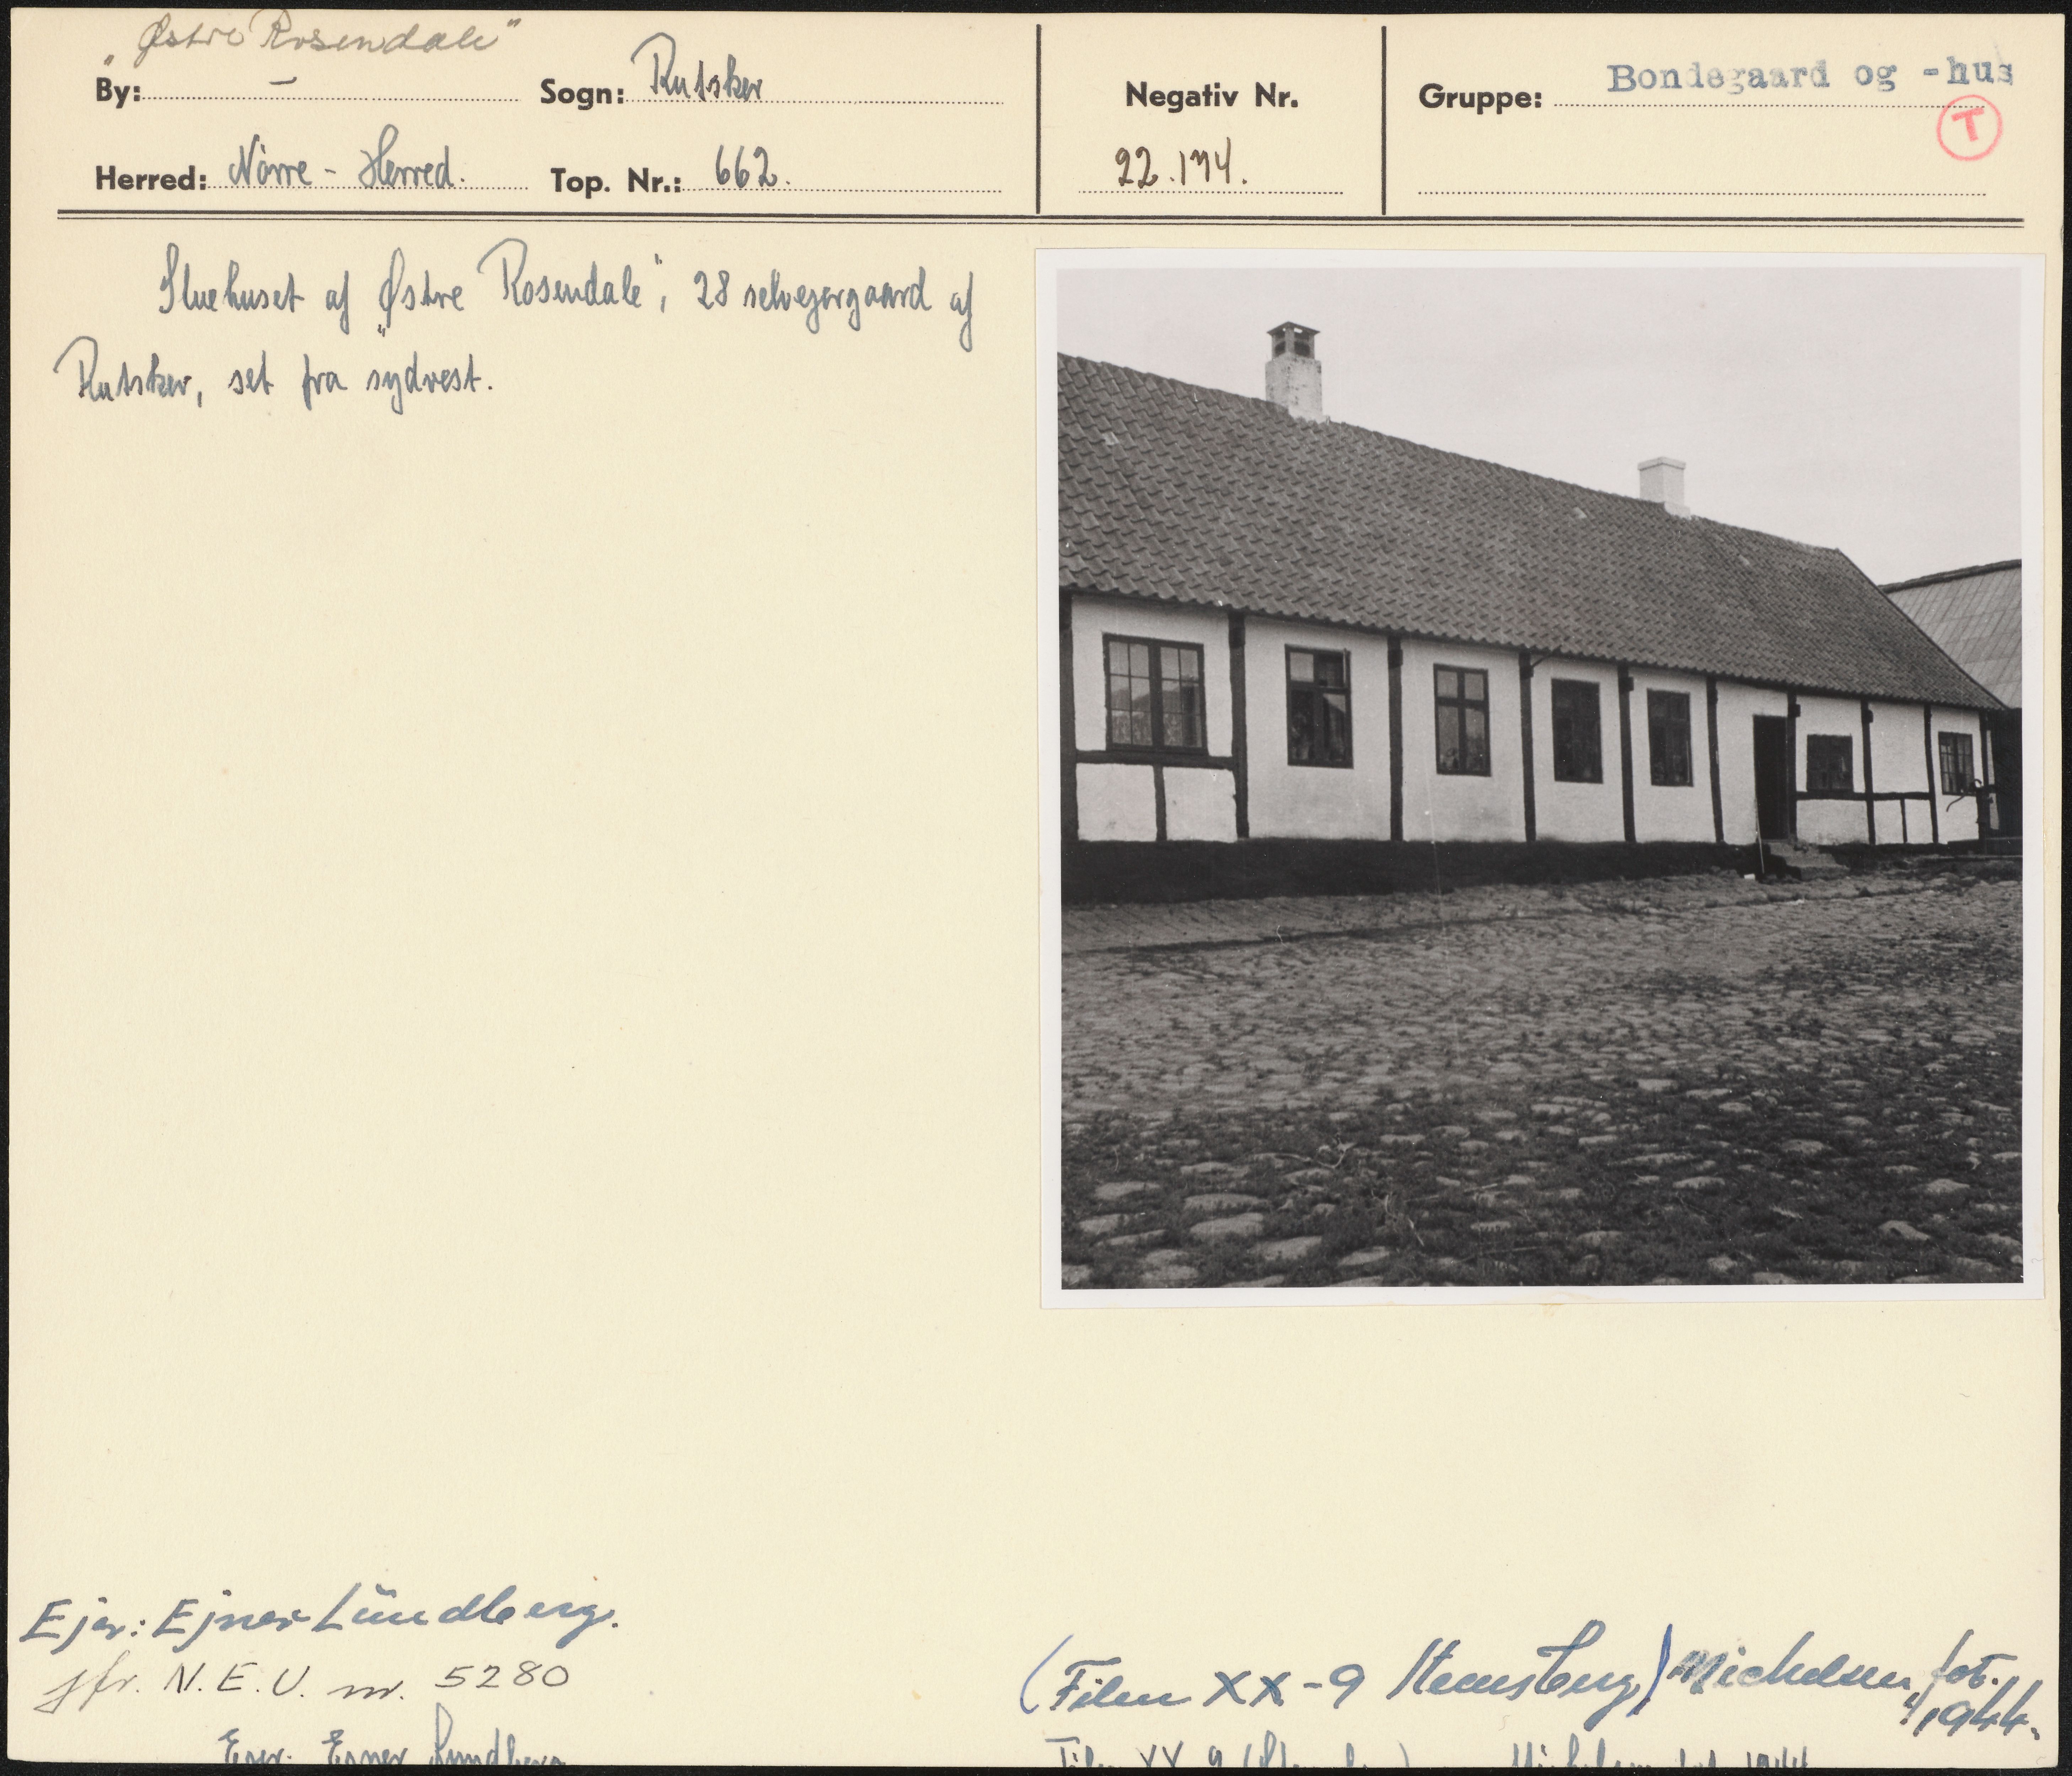 "Østre Rosendale"
By: — Sogn: Rutsker Negativ Nr. Gruppe: Bondegaard og -hus
T
Herred: Nörre - Herred. Top. Nr.: 662. 22.174.
Stuehuset af "Østre Rosendale", 28 selvejergaard af
Rutsker, set fra sydvest.
Ejer: Ejner Lŭndberg.
jfr. N.E.U. nr. 5280
(Film XX-9 Stensberg) Michelsen fot.
1944.
Ejer: Ejner Lundberg
Film XX 9 ( ) Michelsen fot. 1944